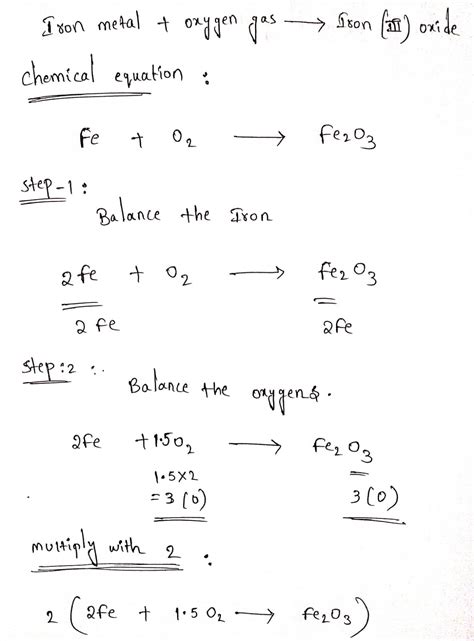 Iron metal + oxygen gas → Iron (III) oxide
Chemical equation :
Fe + O₂ → Fe₂O₃
Step-1 :
Balance the Iron
2Fe + O₂ → Fe₂O₃
2Fe 2Fe
Step:2 :.
Balance the oxygens.
2Fe + 1.5O₂ → Fe₂O₃
1.5×2
= 3(O) 3(O)
multiply with 2 :
2 ( 2Fe + 1.5 O₂ → Fe₂O₃ )